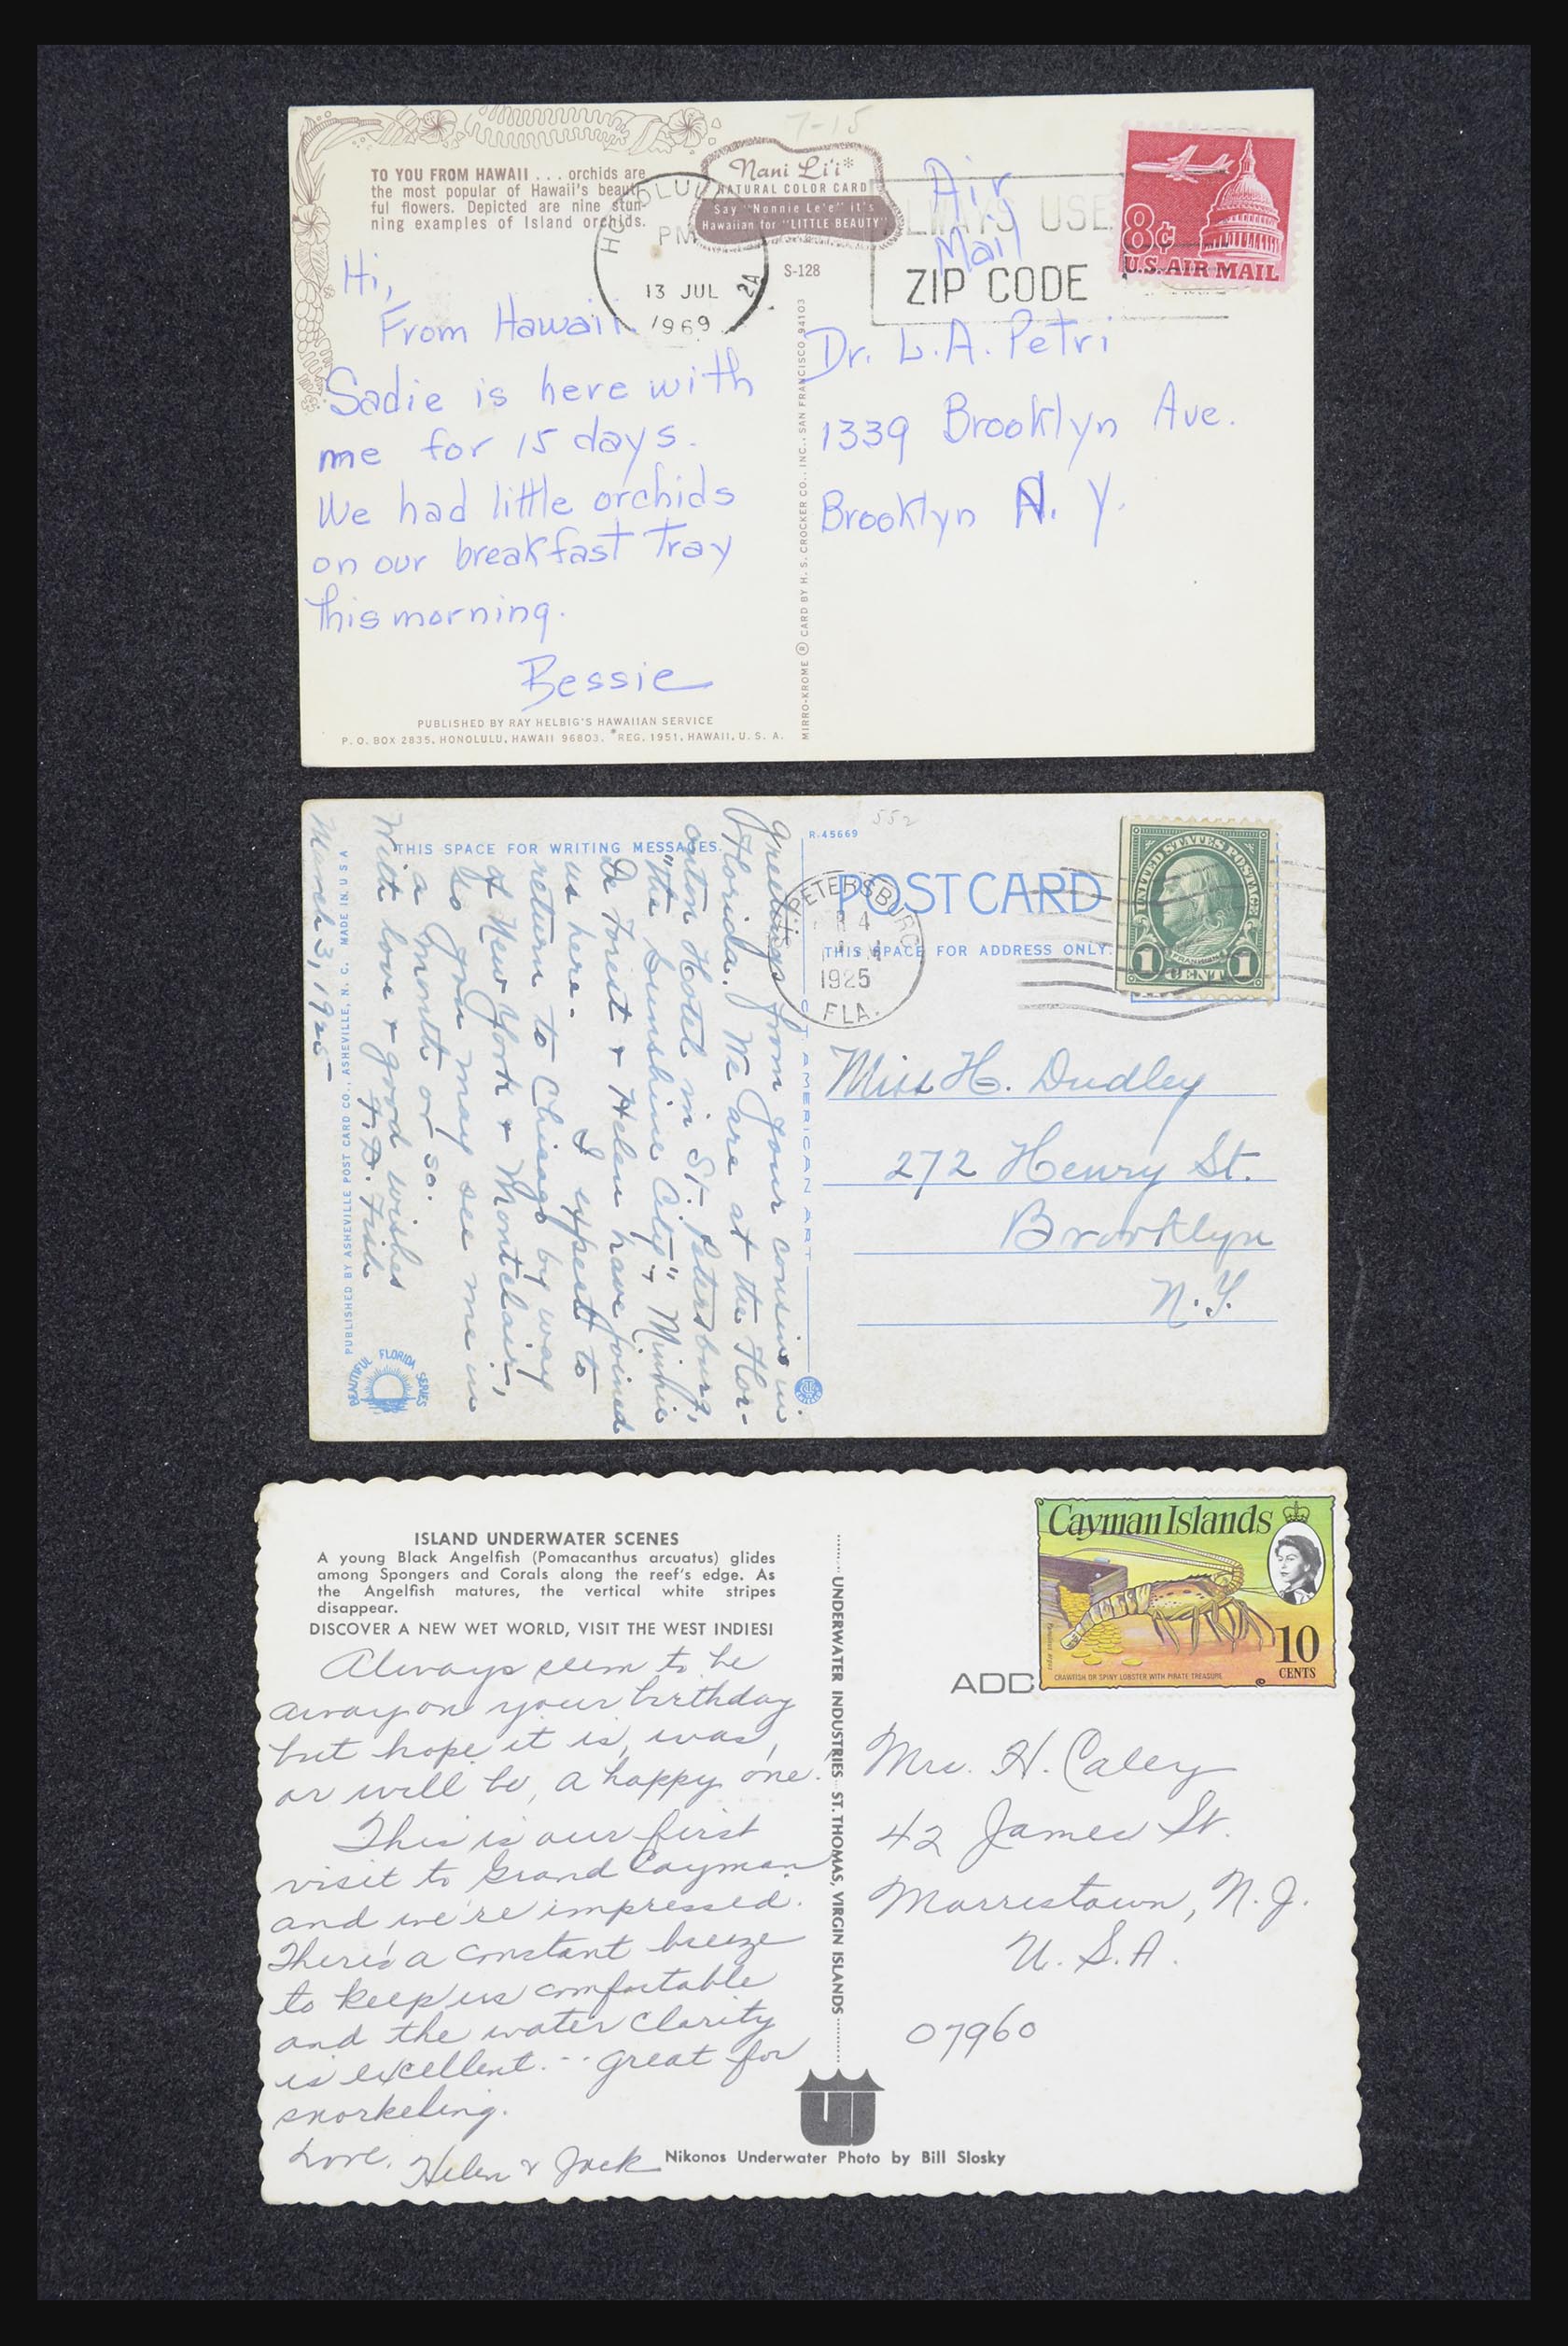 7-15
TO YOU FROM HAWAII . . . orchids are
the most popular of Hawaii's beauti-
ful flowers. Depicted are nine stun-
ning examples of Island orchids.
Nani Li'i*
NATURAL COLOR CARD
Say "Nonnie Le'e" it's
Hawaiian for "LITTLE BEAUTY"
S-128
HONOLULU
PM
13 JUL
1969
ALWAYS USE
ZIP CODE
Air
Mail
8¢
U.S. AIR MAIL
Hi,
From Hawaii.
Sadie is here with
me for 15 days.
We had little orchids
on our breakfast tray
this morning.
Bessie
PUBLISHED BY RAY HELBIG'S HAWAIIAN SERVICE
P. O. BOX 2835, HONOLULU, HAWAII 96803. *REG. 1951, HAWAII, U. S. A.
MIRRO-KROME ® CARD BY H. S. CROCKER CO., INC., SAN FRANCISCO 94103
Dr. L. A. Petri
1339 Brooklyn Ave.
Brooklyn N. Y.
THIS SPACE FOR WRITING MESSAGES.
R-45669
552
POST CARD
THIS SPACE FOR ADDRESS ONLY.
ST. PETERSBURG
4
1925
FLA.
UNITED STATES POSTAGE
FRANKLIN
1 CENT 1
Greetings from your cousin in
Florida. We are at the Flor-
onton Hotel in St. Petersburg,
"The Sunshine City" & Minnie
De Forest & Helen have joined
us here. I expect to
return to Chicago by way
of New York & Montclair,
so you may see me in
a month or so.
With love & good wishes
F. D. Fish
March 3, 1925
PUBLISHED BY ASHEVILLE POST CARD CO., ASHEVILLE, N. C. MADE IN U S A
BEAUTIFUL FLORIDA SERIES
C. T. AMERICAN ART
Miss H. Dudley
272 Henry St.
Brooklyn
N.Y.
ISLAND UNDERWATER SCENES
A young Black Angelfish (Pomacanthus arcuatus) glides
among Spongers and Corals along the reef's edge. As
the Angelfish matures, the vertical white stripes
disappear.
DISCOVER A NEW WET WORLD, VISIT THE WEST INDIES!
Always seem to be
away on your birthday
but hope it is, was,
or will be, a happy one.
This is our first
visit to Grand Cayman
and we're impressed.
There's a constant breeze
to keep us comfortable
and the water clarity
is excellent... great for
snorkeling.
Love, Helen & Jack
UNDERWATER INDUSTRIES ST. THOMAS, VIRGIN ISLANDS
UI
Nikonos Underwater Photo by Bill Slosky
Cayman Islands
CRAWFISH OR SPINY LOBSTER WITH PIRATE TREASURE
10
CENTS
ADD
Mrs. H. Caley
42 James St.
Morristown, N. J.
U. S. A.
07960